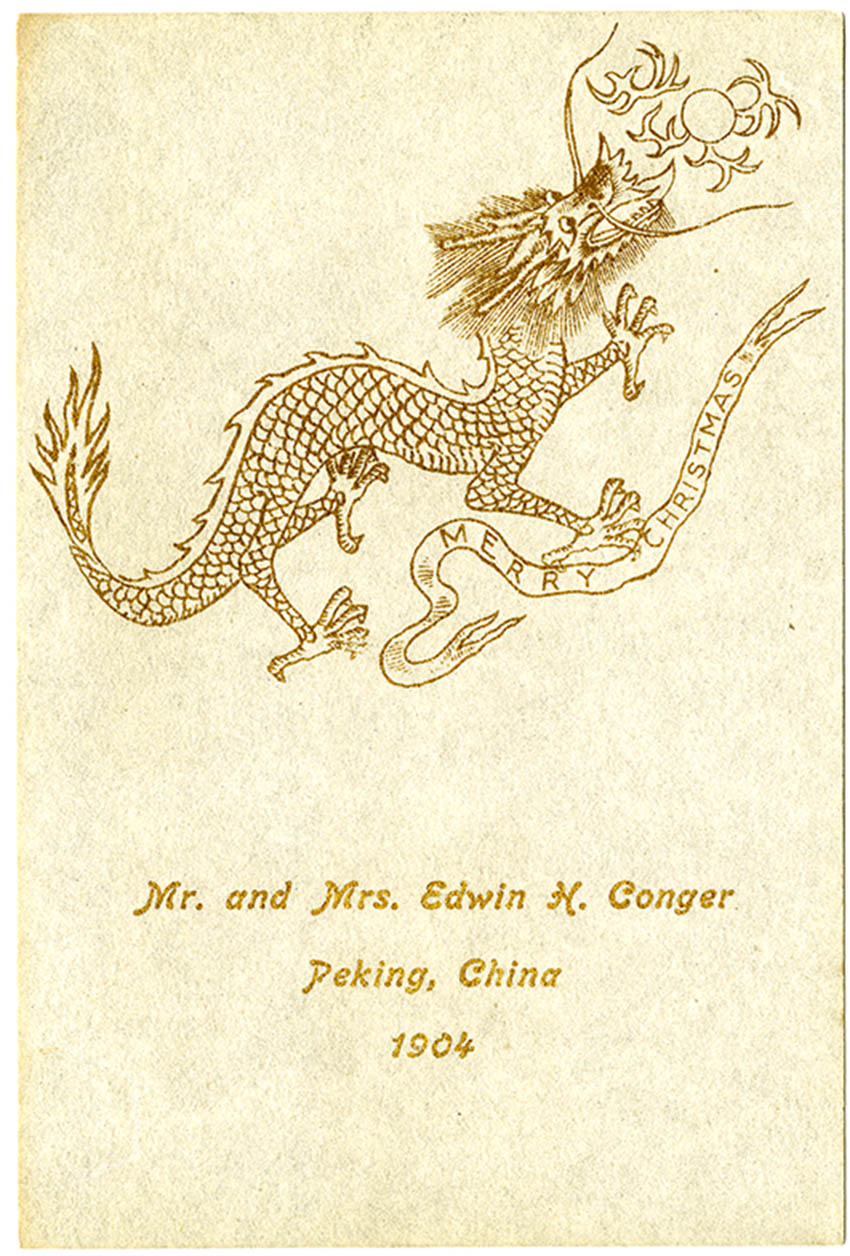 MERRY CHRISTMAS
Mr. and Mrs. Edwin H. Conger
Peking, China
1904